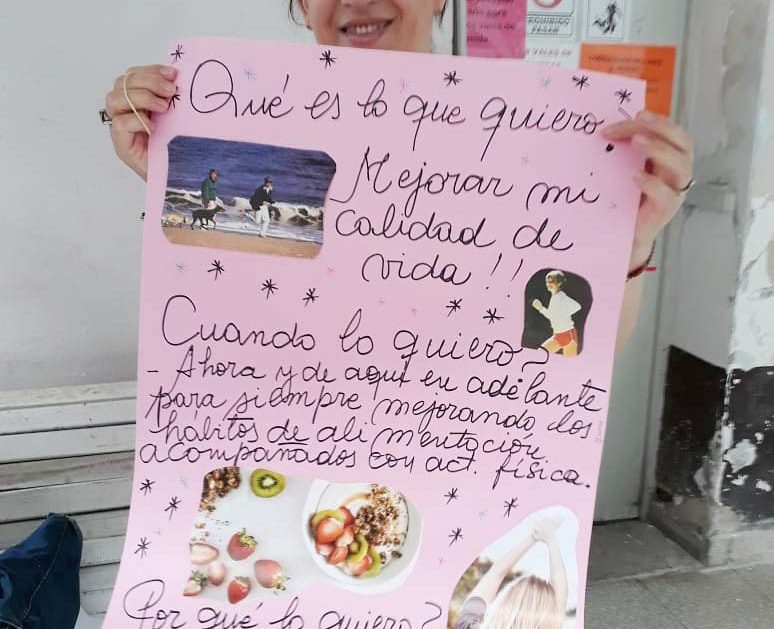 PROHIBIDO
PASAR
Qué es lo que quiero?
Mejorar mi
calidad de
vida!!
Cuando lo quiero?
- Ahora y de aquí en adelante
para siempre mejorando los
hábitos de alimentación
acompañados con act. física.
Por qué lo quiero?